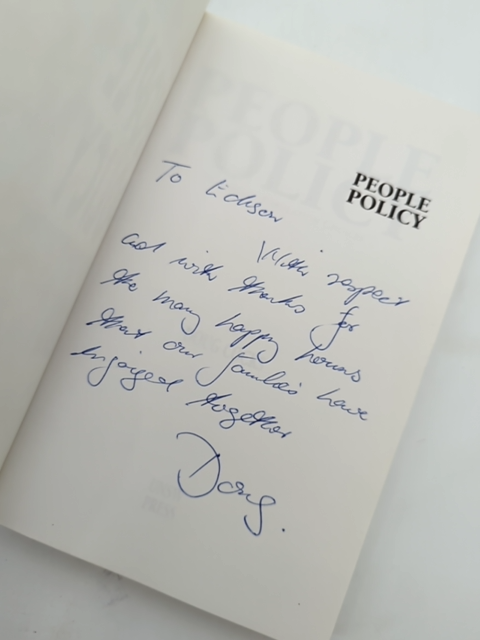 PEOPLE
POLICY
To Edison
With respect
and with thanks for
the many happy hours
that our families have
enjoyed together
Doug.